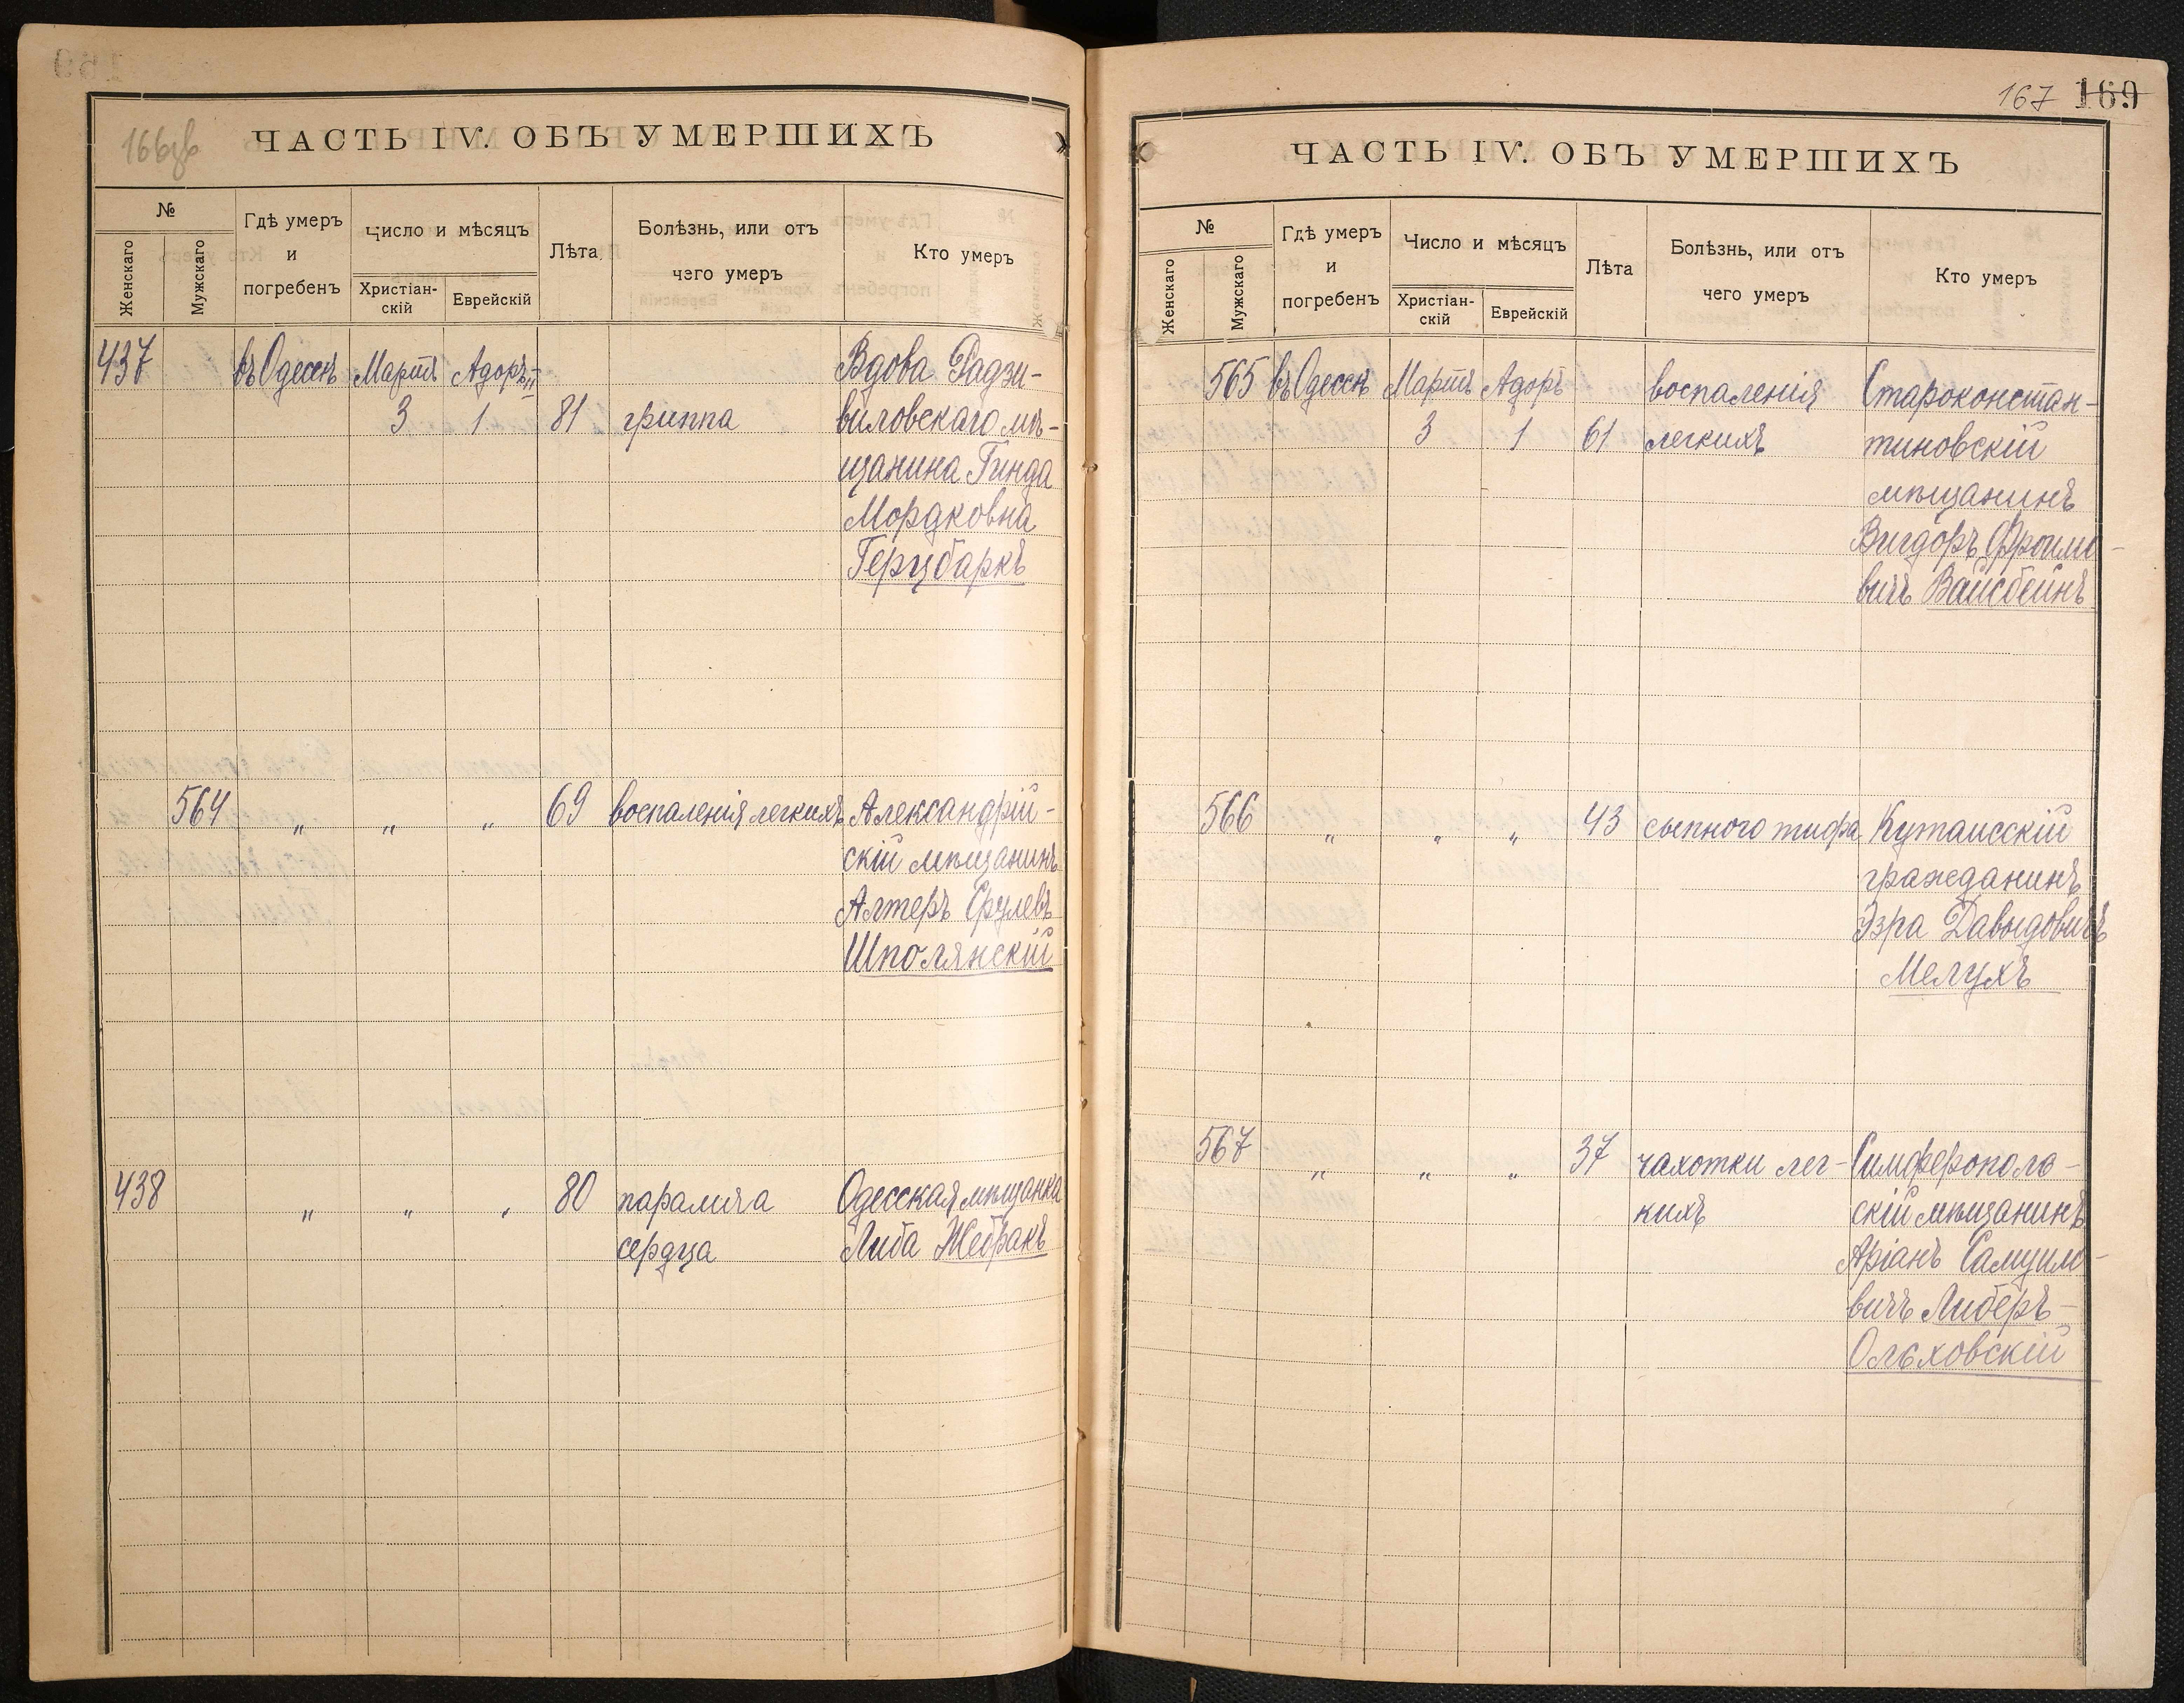 166зв
ЧАСТЬ IV. ОБЪ УМЕРШИХЪ
№
Женскаго
Мужскаго
Гдѣ умеръ
и
погребенъ
Число и мѣсяцъ
Христіан-
скій
Еврейскій
Лѣта
Болѣзнь, или отъ
чего умеръ
Кто умеръ
437 въ Одессѣ Мартъ Адоръ II Вдова Радзи-
3 1 81 гриппа виловскаго мѣ-
щанина Гинда
Мордковна
Герцбаркъ
564 " " " 69 воспаленія легкихъ Александрій-
скій мѣщанинъ
Алтеръ Срулевъ
Шполянскій
438 " " " 80 паралича Одесская мѣщанка
сердца Либа Жебракъ
167 169
ЧАСТЬ IV. ОБЪ УМЕРШИХЪ
№
Женскаго
Мужскаго
Гдѣ умеръ
и
погребенъ
Число и мѣсяцъ
Христіан-
скій
Еврейскій
Лѣта
Болѣзнь, или отъ
чего умеръ
Кто умеръ
565 въ Одессѣ Мартъ Адоръ воспаленія Староконстан-
3 1 61 легкихъ тиновскій
мѣщанинъ
Вигдоръ Фроимо-
вичъ Вайсбейнъ
566 " " " 43 сыпного тифа Кутаисскій
гражданинъ
Эзра Давыдовичъ
Мелухъ
567 " " " 37 чахотки лег- Симферополь-
кихъ скій мѣщанинъ
Аріанъ Самуило-
вичъ Либеръ-
Ольховскій